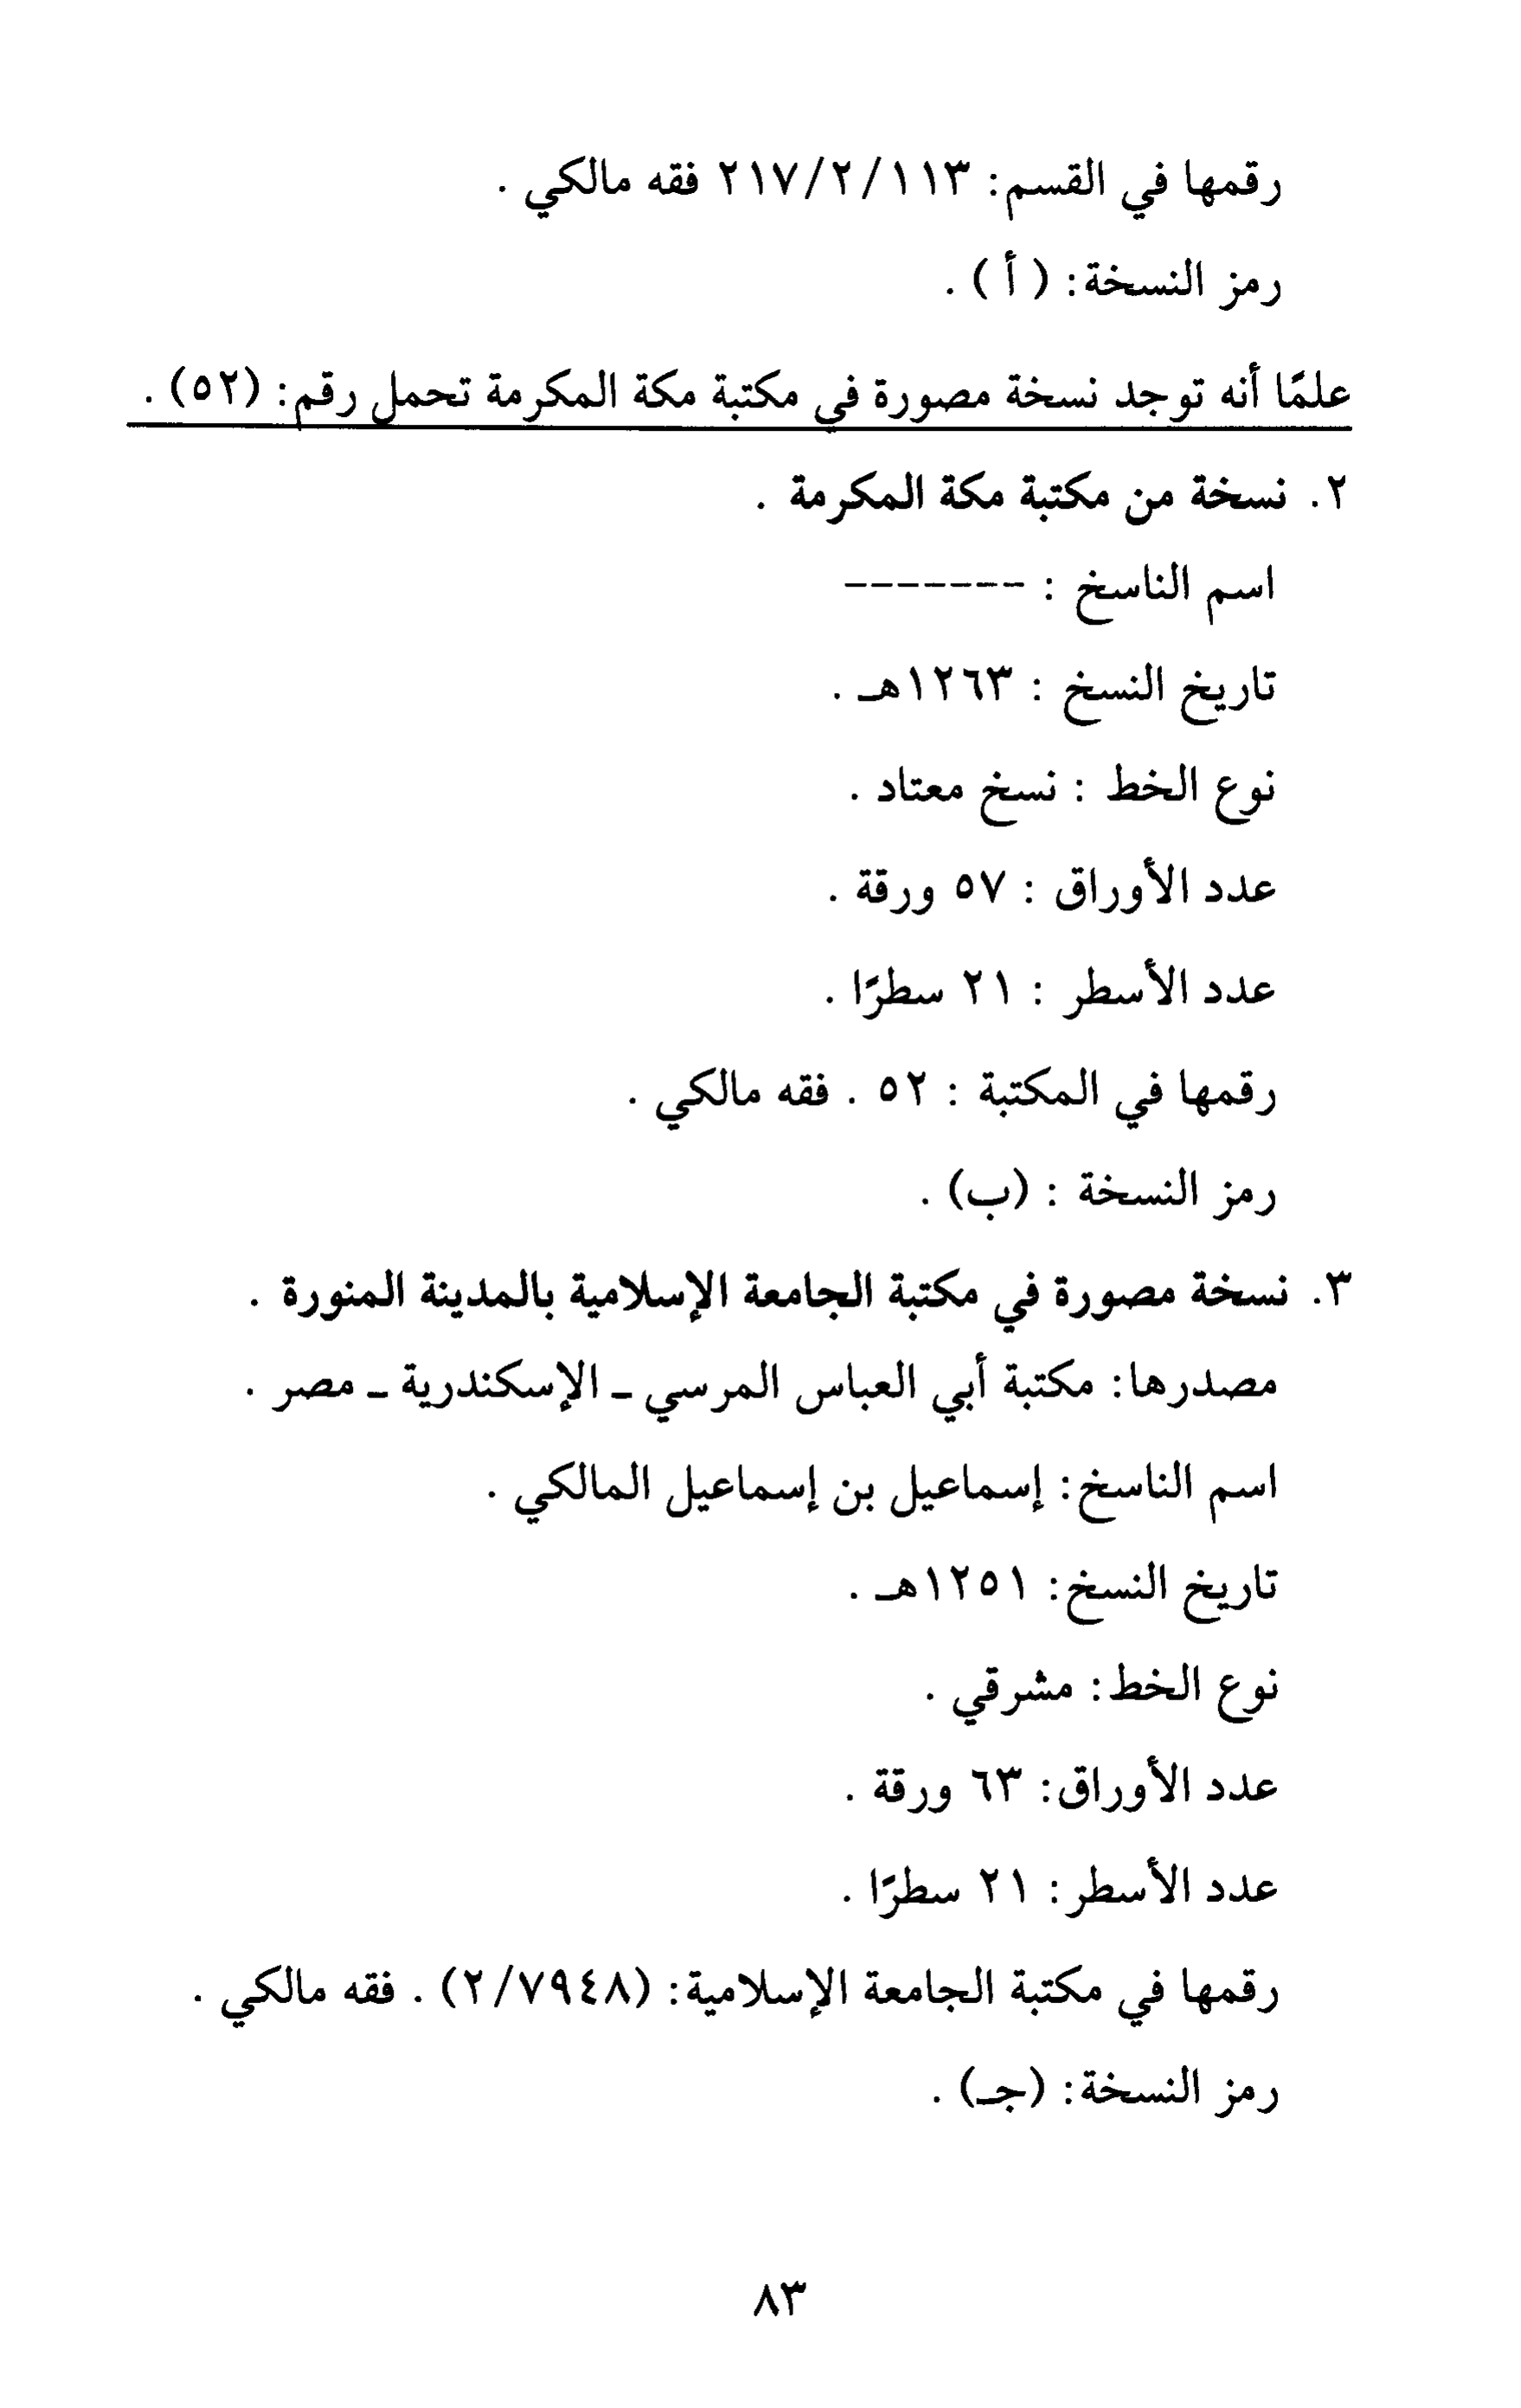 رقمها في القسم: ٢١٧/٢/١١٣ فقه مالكي .
رمز النسخة: ( أ ) .
علمًا أنه توجد نسخة مصورة في مكتبة مكة المكرمة تحمل رقم: (٥٢) .
٢. نسخة من مكتبة مكة المكرمة .
اسم الناسخ : -------
تاريخ النسخ : ١٢٦٣هـ .
نوع الخط : نسخ معتاد .
عدد الأوراق : ٥٧ ورقة .
عدد الأسطر : ٢١ سطرًا .
رقمها في المكتبة : ٥٢ . فقه مالكي .
رمز النسخة : (ب) .
٣. نسخة مصورة في مكتبة الجامعة الإسلامية بالمدينة المنورة .
مصدرها: مكتبة أبي العباس المرسي ـ الإسكندرية ـ مصر .
اسم الناسخ: إسماعيل بن إسماعيل المالكي .
تاريخ النسخ: ١٢٥١هـ .
نوع الخط: مشرقي .
عدد الأوراق: ٦٣ ورقة .
عدد الأسطر: ٢١ سطرًا .
رقمها في مكتبة الجامعة الإسلامية: (٢/٧٩٤٨) . فقه مالكي .
رمز النسخة: (جـ) .
٨٣